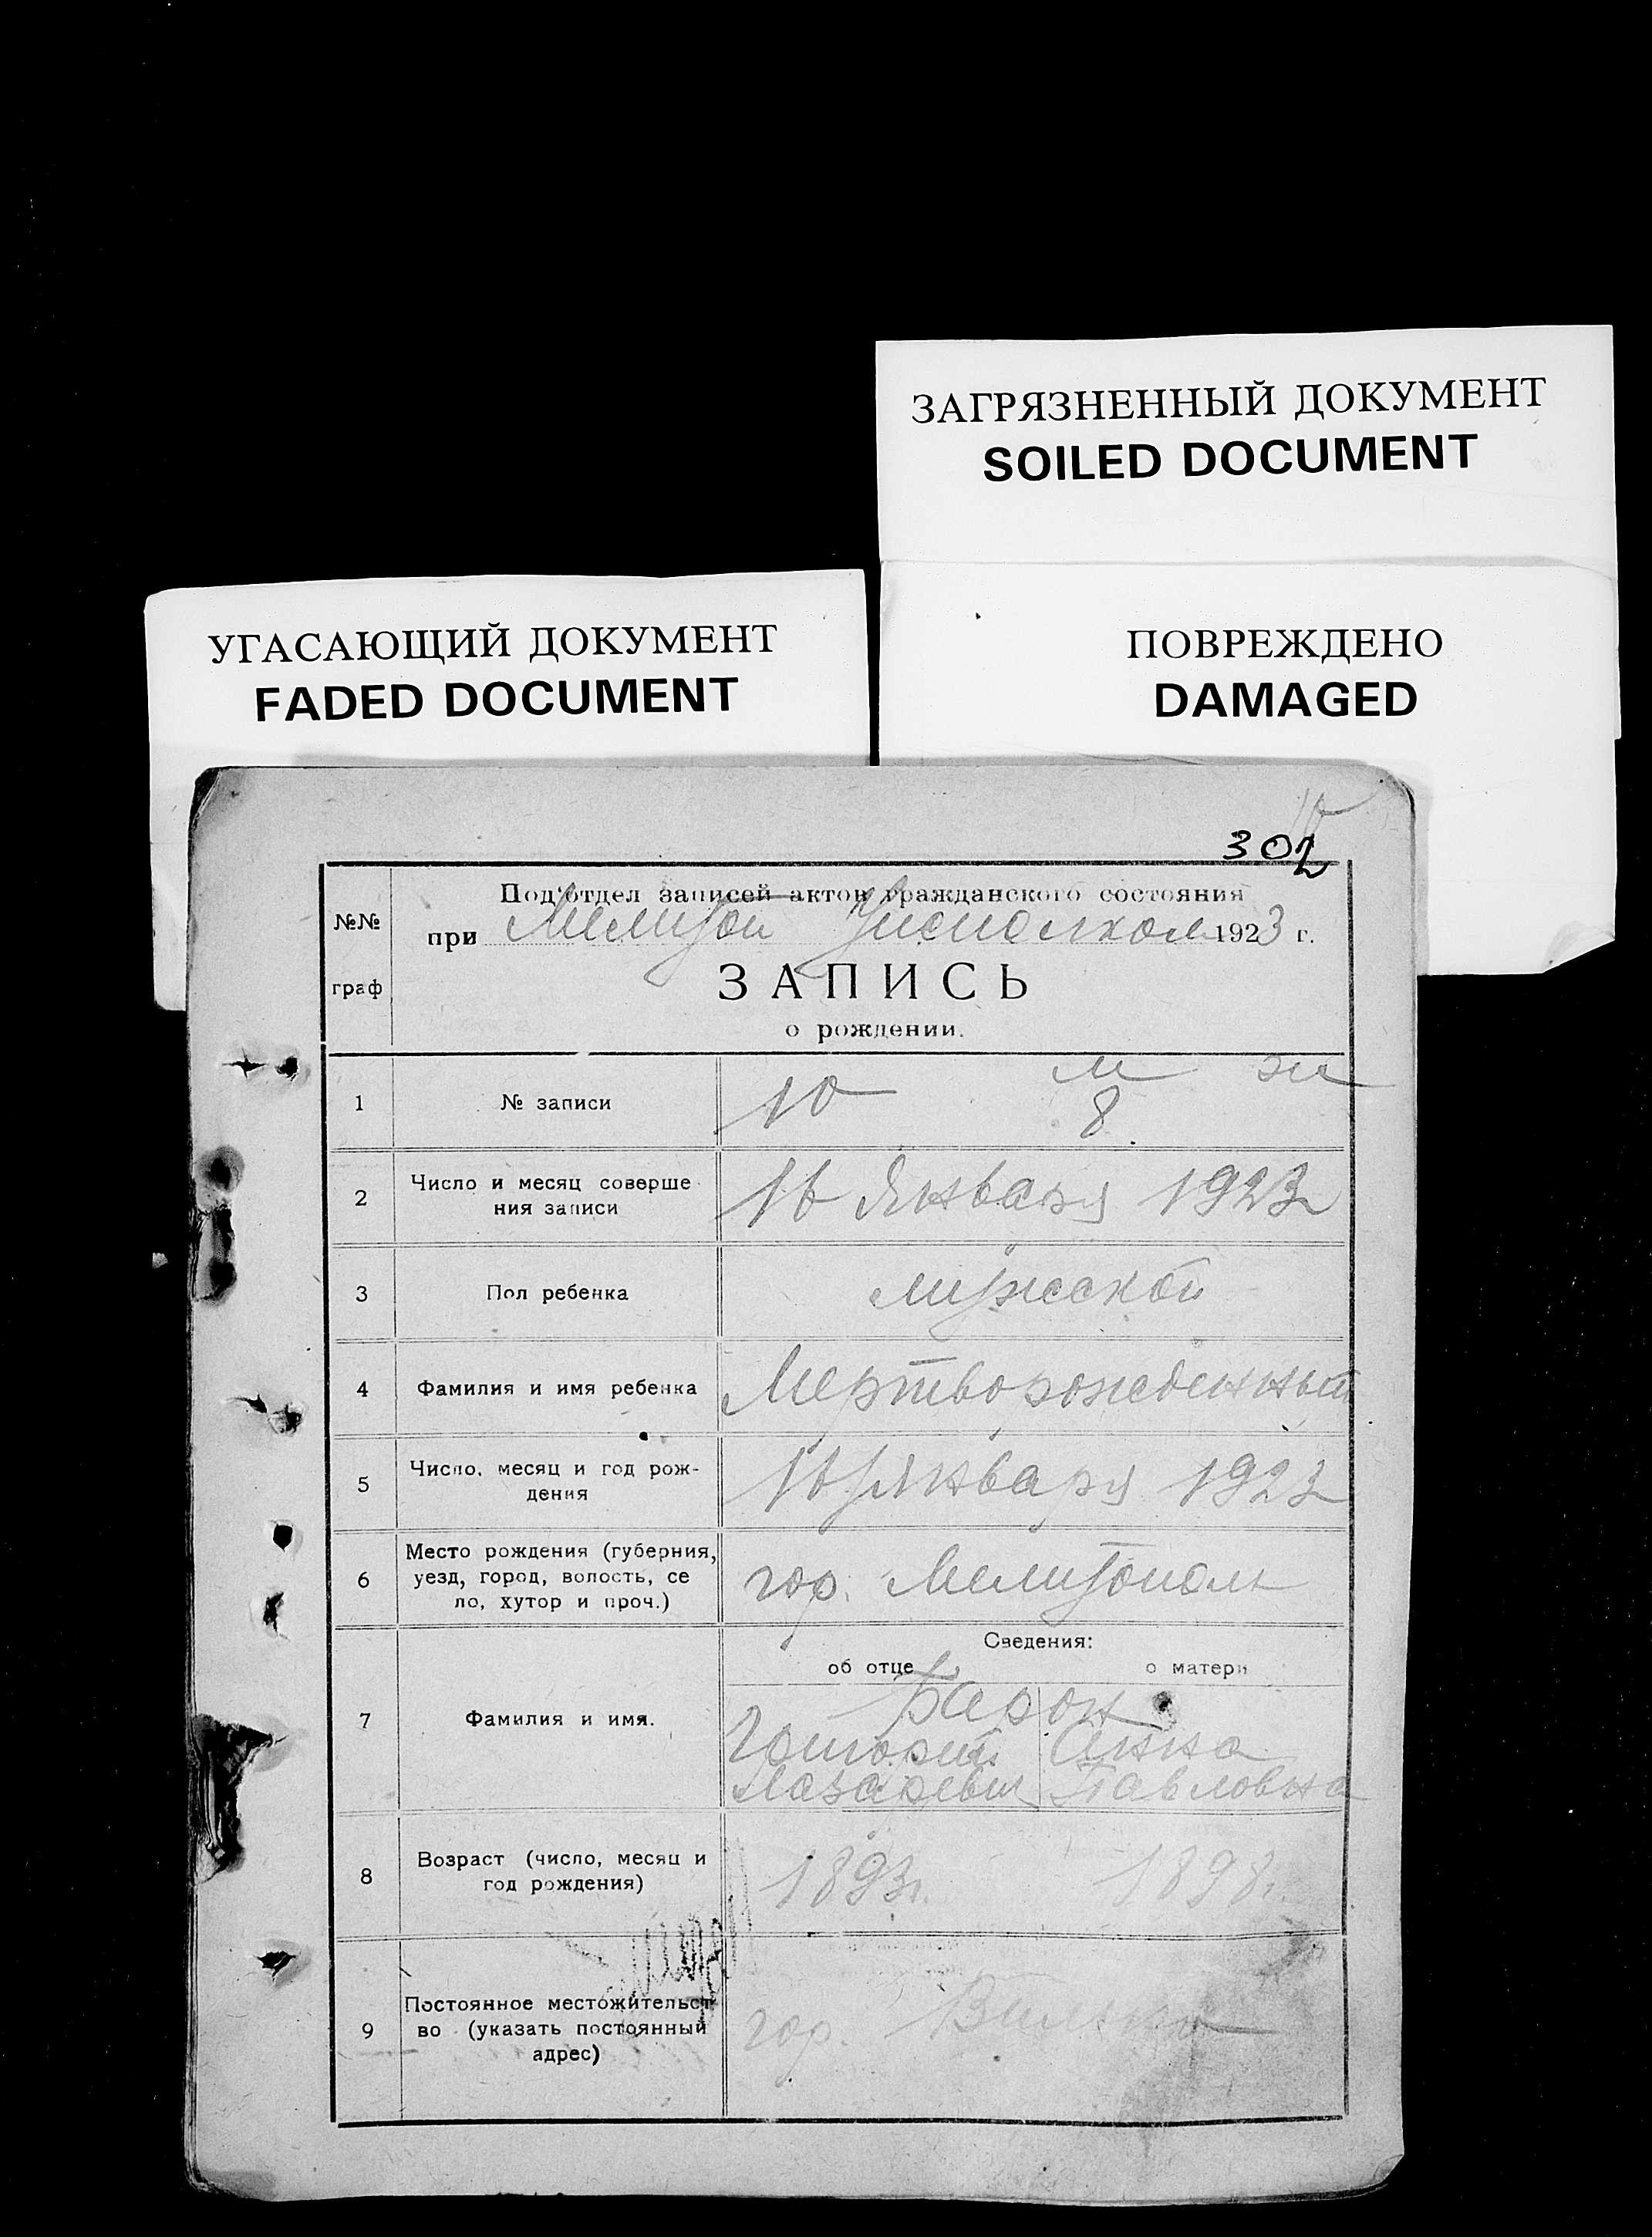 ЗАГРЯЗНЕННЫЙ ДОКУМЕНТ
SOILED DOCUMENT
УГАСАЮЩИЙ ДОКУМЕНТ
FADED DOCUMENT
ПОВРЕЖДЕНО
DAMAGED
302
№№
граф
Под'отдел записей актов гражданского состояния
при Мелитоп Уисполком 1923 г.
ЗАПИСЬ
о рождении.
1 № записи 10 м эж
8
2 Число и месяц соверше
ния записи 16 Января 1923
3 Пол ребенка мужской
4 Фамилия и имя ребенка Мертворожденный
5 Число, месяц и год рож-
дения Января 1923
6 Место рождения (губерния,
уезд, город, волость, се
ло, хутор и проч.) гор. Мелитополь
Сведения:
об отце о матери
7 Фамилия и имя. Барон
Григорий Анна
Лазаревич Павловна
8 Возраст (число, месяц и
год рождения) 1893г. 1898г.
9 Постоянное местожительст
во (указать постоянный
адрес) гор.